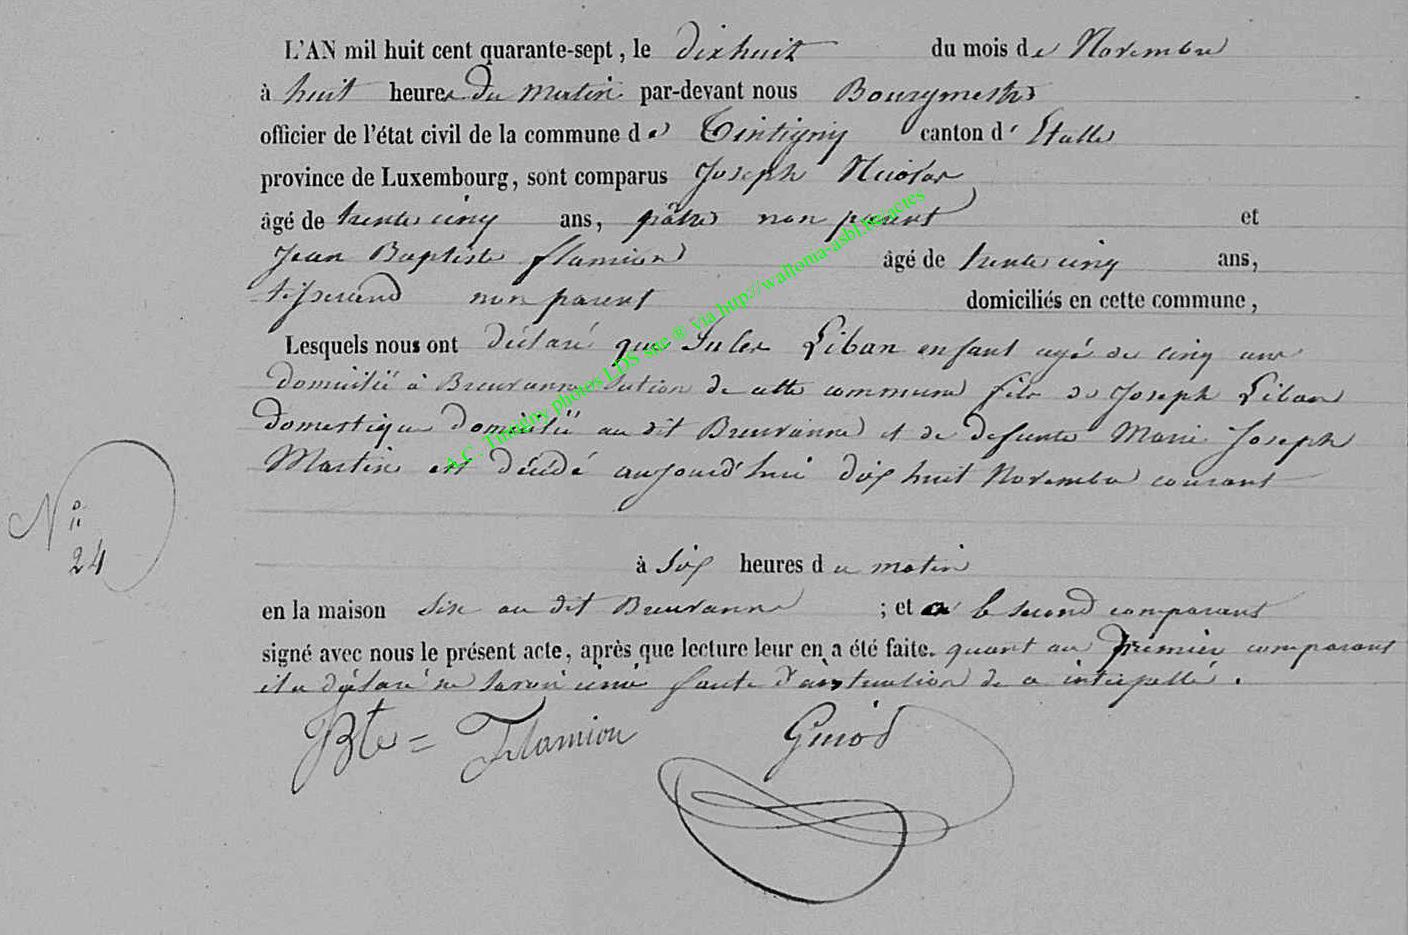 L'AN mil huit cent quarante-sept, le dixhuit du mois de Novembre
à huit heures du matin par-devant nous Bourgmestre
officier de l'état civil de la commune de Tintigny canton d'Etalle
province de Luxembourg, sont comparus Joseph Nicolas
âgé de trente cinq ans, pâtre non parent et
Jean Baptiste flamion âgé de trente cinq ans,
tisserand non parent domiciliés en cette commune,
Lesquels nous ont déclaré que Jules Liban enfant agé de cinq ans
domicilié à Breuvanne Section de cette commune fils de Joseph Liban
domestique domicilié au dit Breuvanne et de defunte Marie Joseph
Martin est décédé aujourd'hui dix huit Novembre courant
N° 24
à Six heures du matin
en la maison Sise au dit Breuvanne ; et a le second comparant
signé avec nous le présent acte, après que lecture leur en a été faite. quant au premier comparant
il a déclaré ne savoir faute d'instruction de ce interpellé.
Bte = Flamion Guiod
A.C. Tintigny photos LDS site ® via http://wallonia-asbl.be/actes